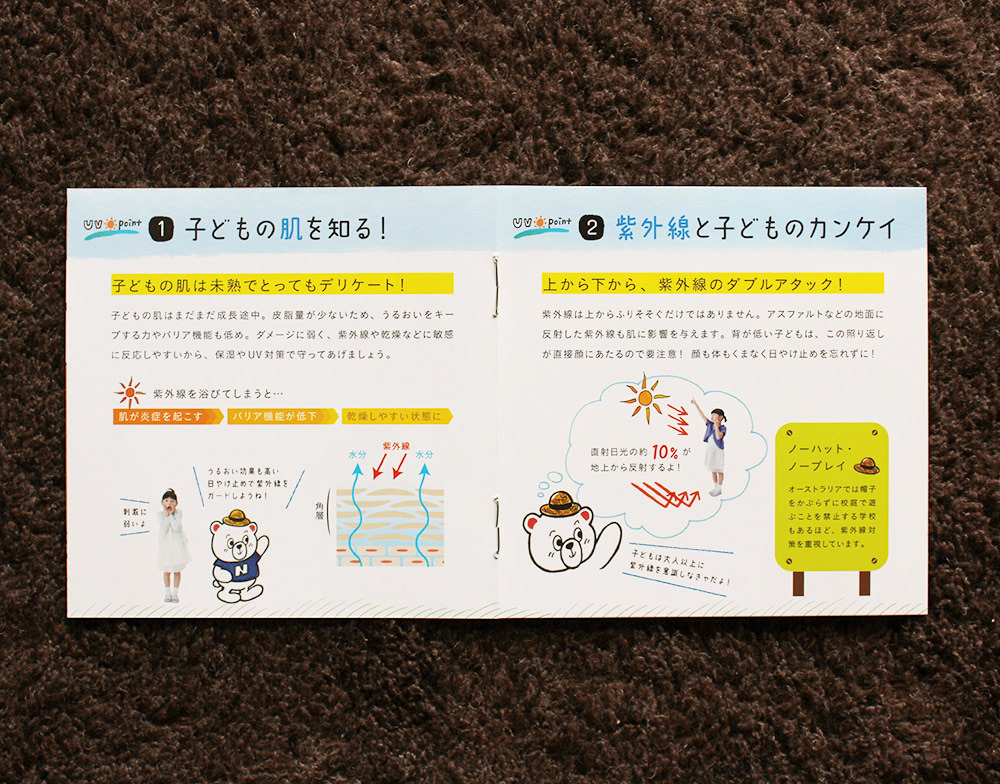 UV point 1 子どもの肌を知る!
子どもの肌は未熟でとってもデリケート!
子どもの肌はまだまだ成長途中。皮脂量が少ないため、うるおいをキー
プする力やバリア機能も低め。ダメージに弱く、紫外線や乾燥などに敏感
に反応しやすいから、保湿やUV対策で守ってあげましょう。
紫外線を浴びてしまうと…
肌が炎症を起こす
バリア機能が低下
乾燥しやすい状態に
刺激に
弱いよ
うるおい効果も高い
日やけ止めで紫外線を
ガードしようね!
N
紫外線
水分
水分
角層
UV point 2 紫外線と子どものカンケイ
上から下から、紫外線のダブルアタック!
紫外線は上からふりそそぐだけではありません。アスファルトなどの地面に
反射した紫外線も肌に影響を与えます。背が低い子どもは、この照り返し
が直接顔にあたるので要注意! 顔も体もくまなく日やけ止めを忘れずに!
直射日光の約10%が
地上から反射するよ!
子どもは大人以上に
紫外線を意識しなきゃだよ!
ノーハット・
ノープレイ
オーストラリアでは帽子
をかぶらずに校庭で遊
ぶことを禁止する学校
もあるほど、紫外線対
策を重視しています。